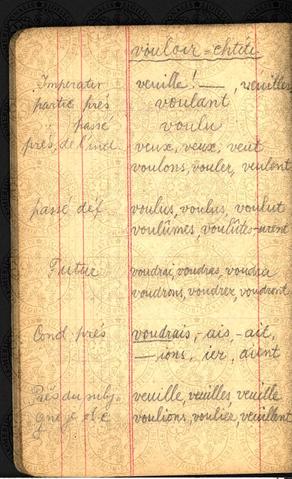 vouloir = chtíti
Imperatir veuille! —, veuilles
partic prés voulant
passé voulu
prés. de l'ind. veux, veux, veut
voulons, voulez, veulent
passé déf voulus, voulus, voulut
voulûmes, voulûtes-urent
Futur voudrai, voudras, voudra
voudrons, voudrez, voudront
Cond prés voudrais, -ais, -ait,
—ions, iez, aient
Prés du subj. veuille, veuilles, veuille
que je etc voulions, vouliez, veuillent